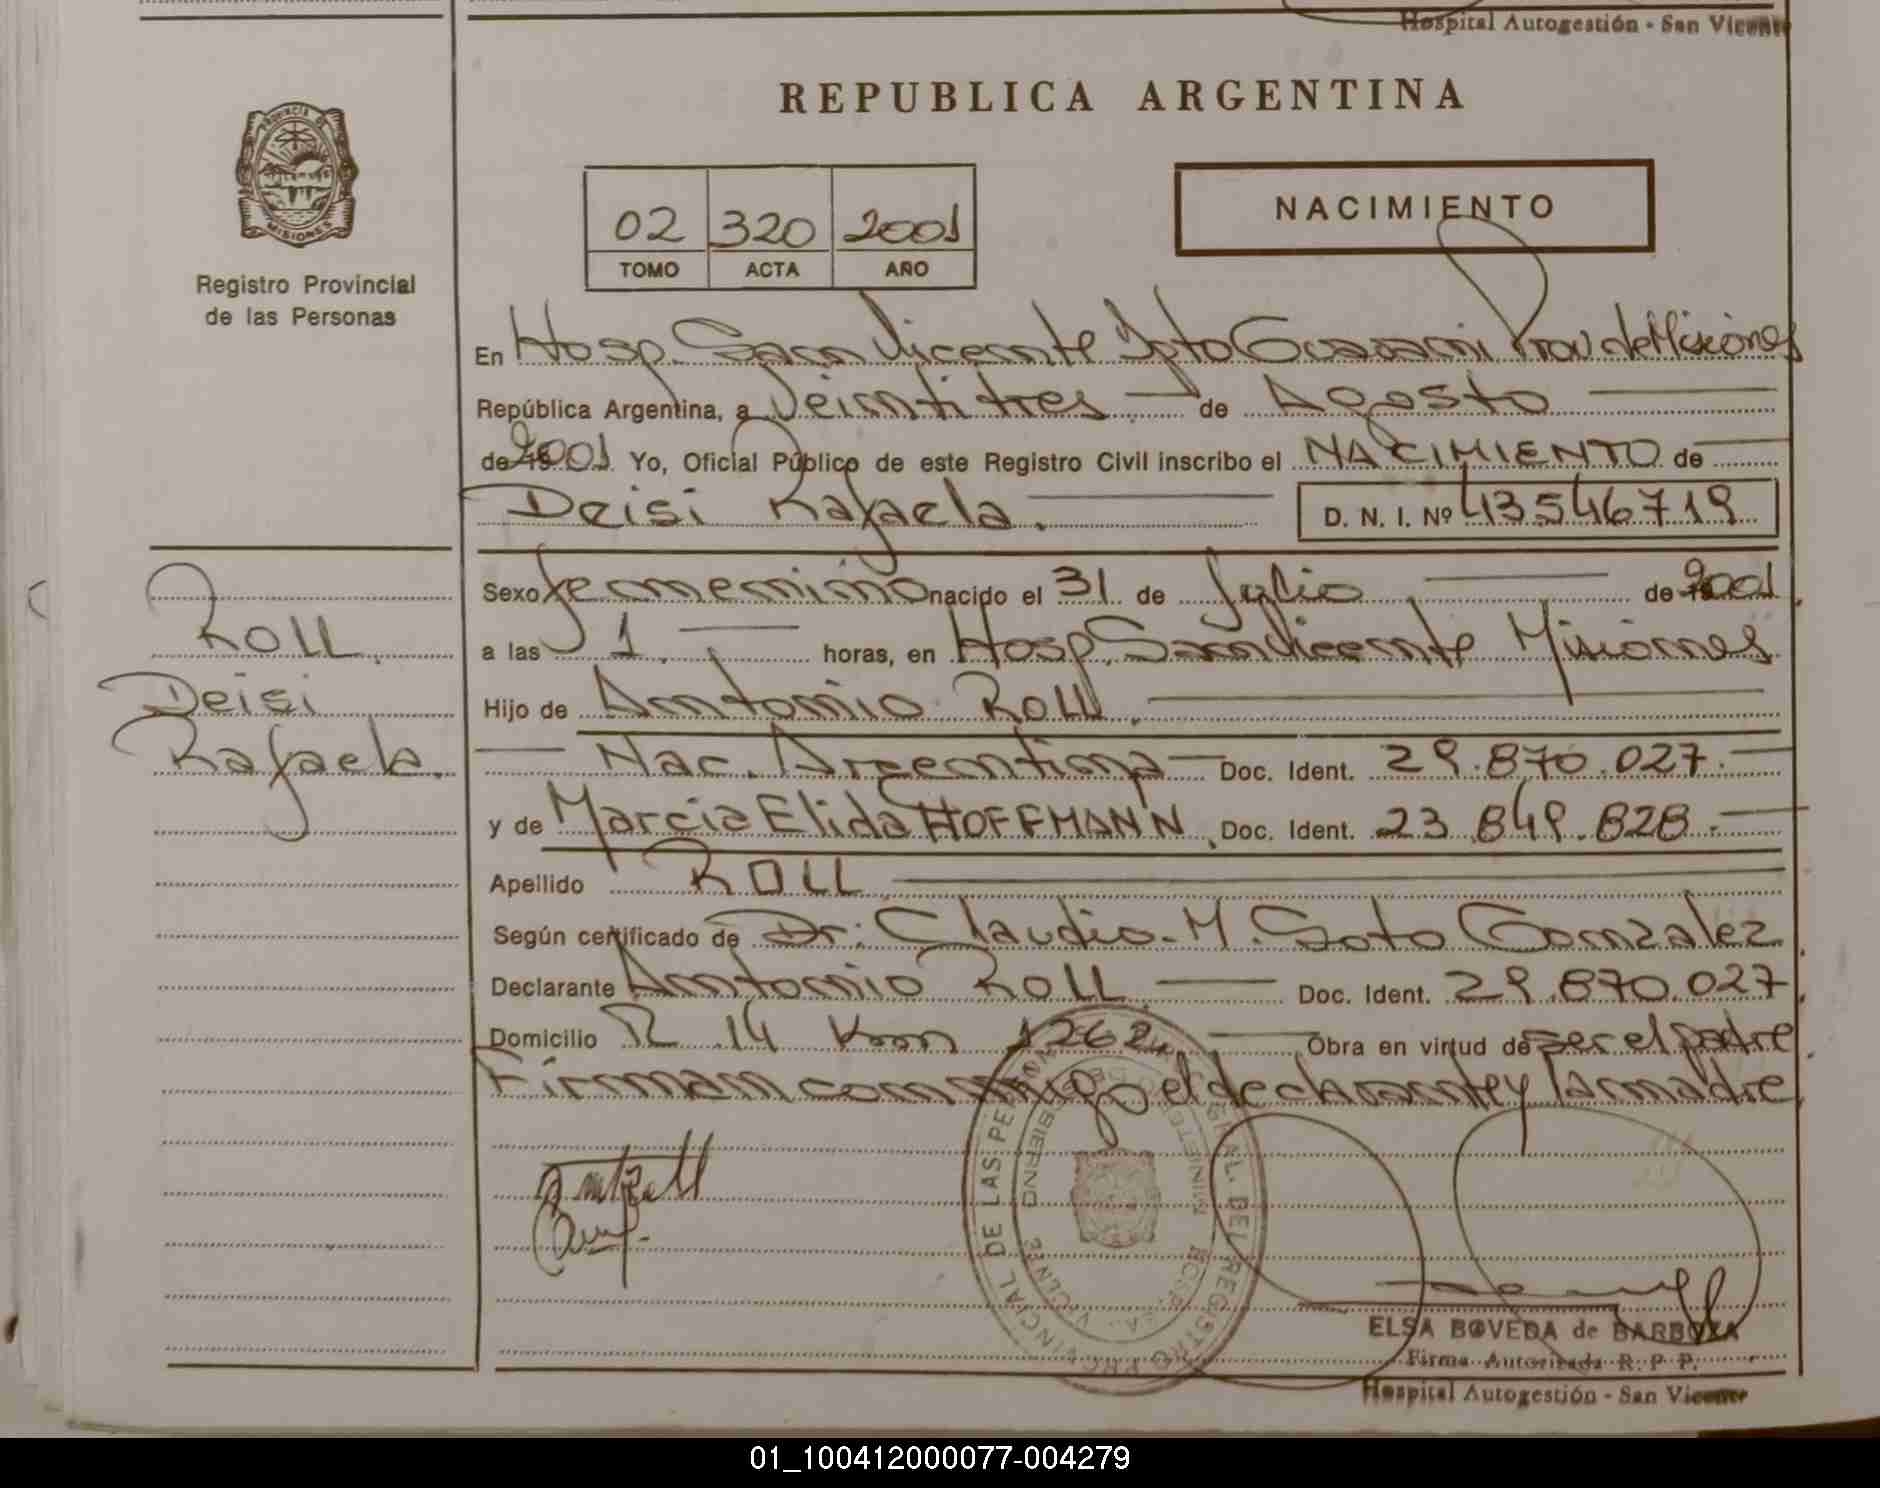 Hospital Autogestión - San Vicente
REPUBLICA ARGENTINA
MISIONES
Registro Provincial
de las Personas
02 320 2001
TOMO ACTA AÑO
NACIMIENTO
En Hosp. San Vicente Dpto Guarani Prov de Misiones
República Argentina, a Veintitres de Agosto
de 2001 Yo, Oficial Público de este Registro Civil inscribo el NACIMIENTO de
Deisi Rafaela. D. N. I. Nº 43546719
Sexo femenino nacido el 31 de Julio de 2001
a las 1 horas, en Hosp. San Vicente Misiones
Hijo de Antonio ROLL.
Nac. Argentina Doc. Ident. 29.870.027.
y de Marcia Elida HOFFMANN. Doc. Ident. 23.849.828.
Apellido ROLL
Según certificado de Dr. Claudio M. Soto Gonzalez.
Declarante Antonio ROLL. Doc. Ident. 29.870.027.
Domicilio R. 14 Km 1262 Obra en virtud de ser el padre.
Firman conmigo el declarante y la madre.
ROLL.
Deisi
Rafaela.
ELSA BOVEDA de BARBOZA
Firma Autorizada R. P. P.
Hospital Autogestión - San Vicente
01_100412000077-004279